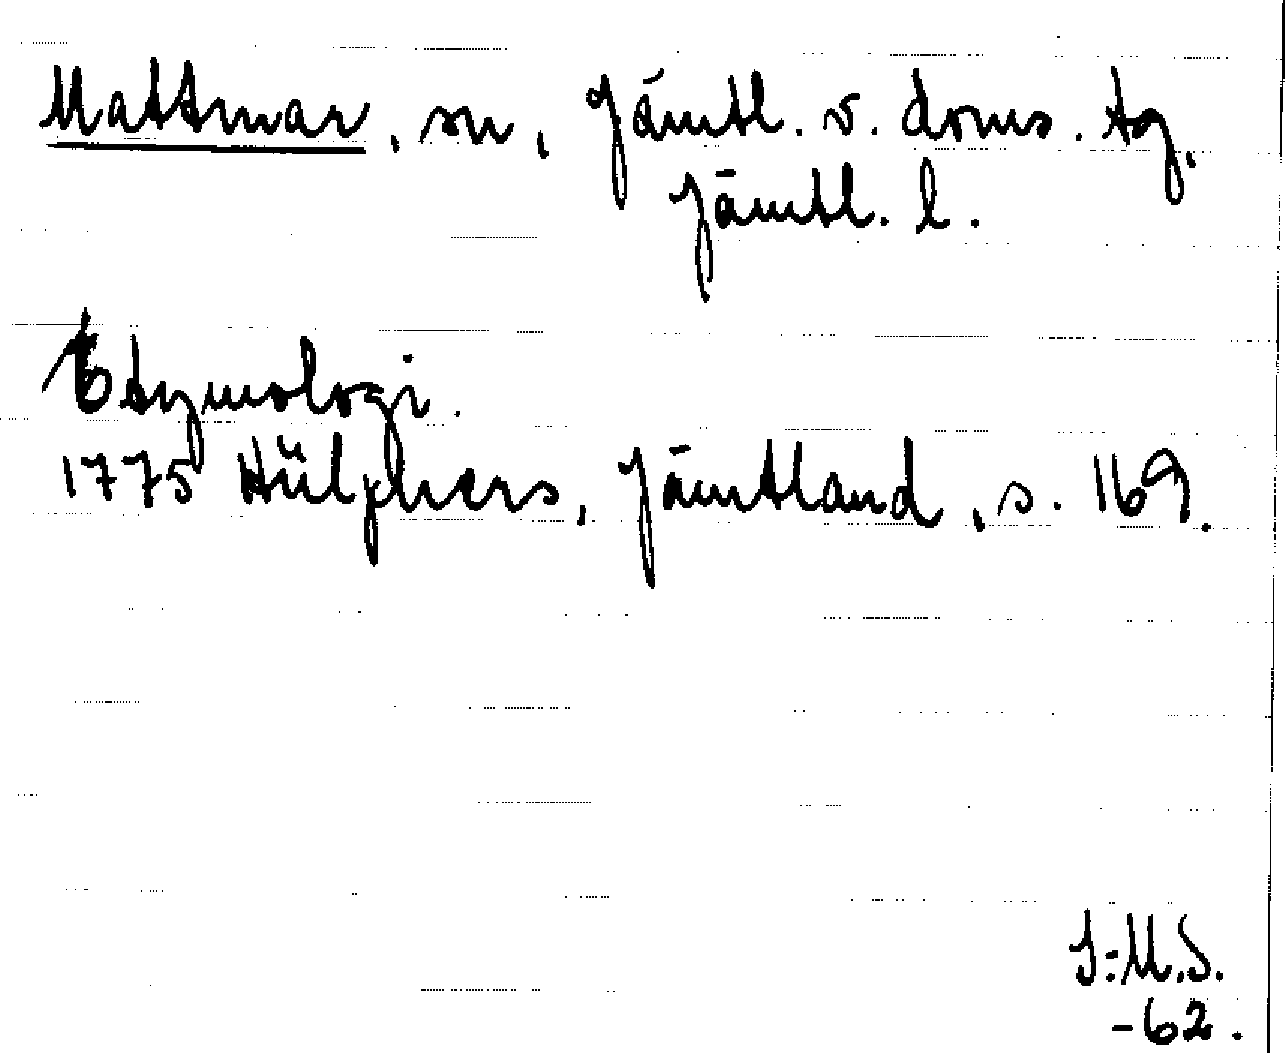 Mattmar, sn, Jämtl. v. doms. tg,
Jämtl. l.
Etymologi.
1775 Hülphers, Jämtland, s. 169.
I:M.S.
-62.